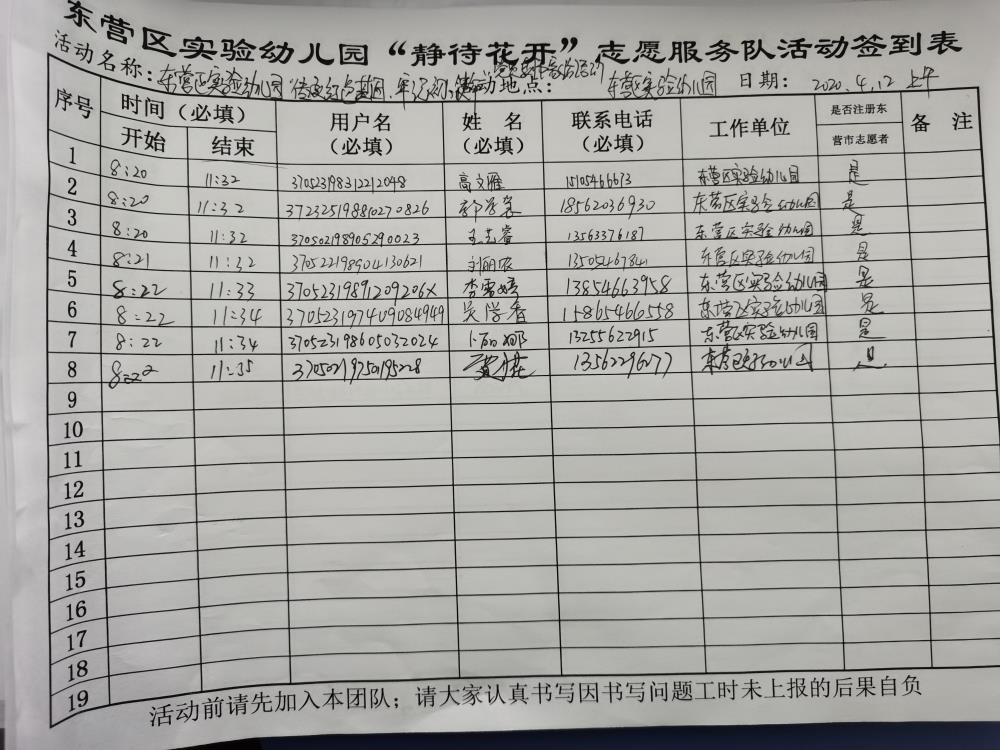 东营区实验幼儿园“静待花开”志愿服务队活动签到表
活动名称：东营区实验幼儿园 传承红色基因 活动地点： 东营区实验幼儿园 日期： 2020.4.12 上午
序号 时间（必填） 用户名（必填） 姓名（必填） 联系电话（必填） 工作单位 是否注册东营市志愿者 备注
开始 结束
1 8:20 11:32 370523198312212048 高文雁 15105466673 东营区实验幼儿园 是
2 8:20 11:32 372325198810270826 18562036930 东营区实验幼儿园 是
3 8:20 11:32 370502198905290023 王志睿 13563376187 东营区实验幼儿园 是
4 8:21 11:32 370522198904130621 刘丽农 13505467841 东营区实验幼儿园 是
5 8:22 11:33 37052319891209206X 李雪婷 13854663958 东营区实验幼儿园 是
6 8:22 11:34 370523197409084949 吴学香 15865466558 东营区实验幼儿园 是
7 8:22 11:34 370523198605032024 13255622915 东营区实验幼儿园 是
8 11:35 37050219750195228 13562296277
9
10
11
12
13
14
15
16
17
18
19
活动前请先加入本团队；请大家认真书写因书写问题工时未上报的后果自负